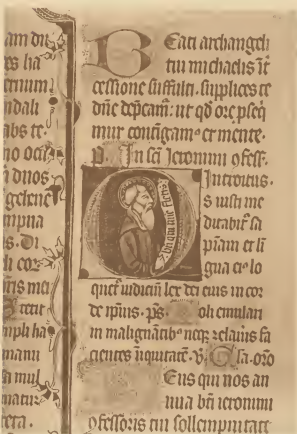 es ha
ernum
ndali
abs te.
a dnos
mpna
s. Di
ris mei
mpli ha
manu
a mul
natur
Beati archangeli
tui michaelis ĩt
cessione suffulti, supplices te
dñe dep̃cam: ut qđ ore p̃seq
mur contĩgam' et mente.
In sc̃i Jeronimi ꝯfess.
Introitus.
Os iusti me
ditabit' sa
pĩam et lĩ
gua ei' lo
quet' iudiciũ lex dei eius in cor
de ip̃ius. p̃s. Noli emulari
in malignãtib' neqꝫ zelauis fa
cientes ĩiquitatẽ. V. Gl̃a. or̃o
Deus qui nos an
nua bt̃i ieronimi
ꝯfessoris tui sollempnitate